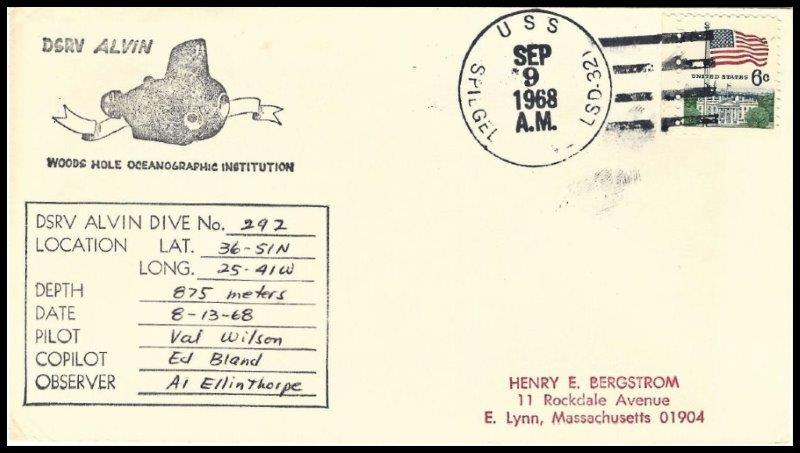 DSRV ALVIN
WOODS HOLE OCEANOGRAPHIC INSTITUTION
USS SPIEGEL LSD-32)
SEP
9
1968
A.M.
UNITED STATES 6c
DSRV ALVIN DIVE No. 292
LOCATION LAT. 36-51N
LONG. 25-41W
DEPTH 875 meters
DATE 8-13-68
PILOT Val Wilson
COPILOT Ed Bland
OBSERVER Al Ellinthorpe
HENRY E. BERGSTROM
11 Rockdale Avenue
E. Lynn, Massachusetts 01904